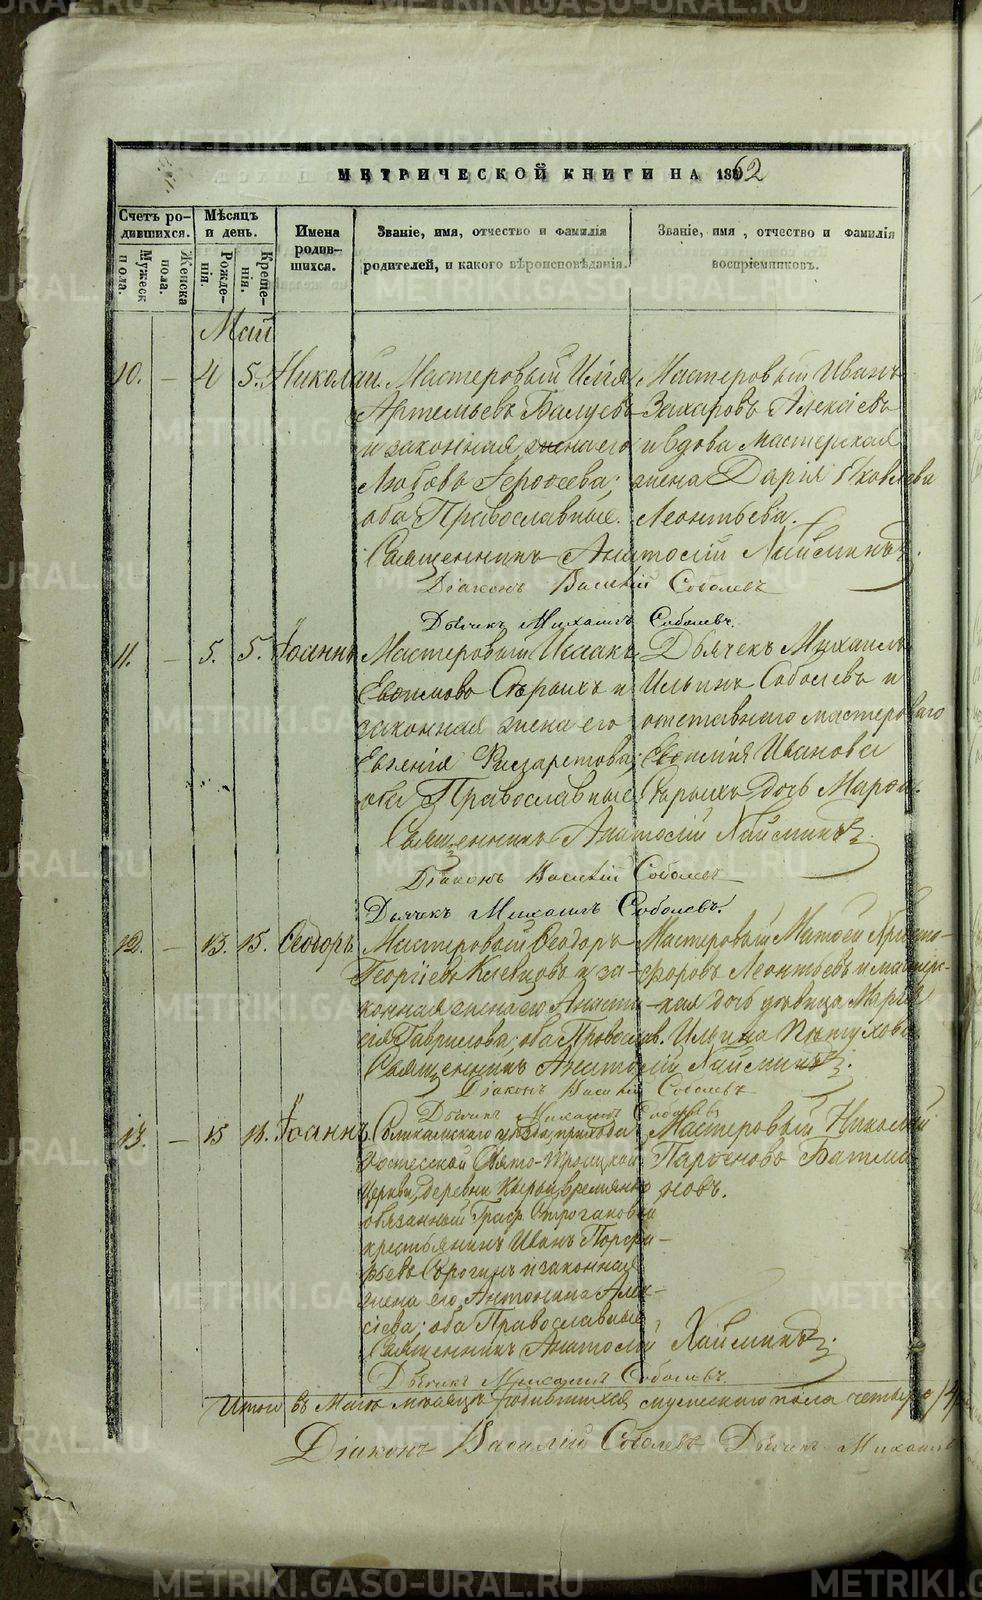 МЕТРИЧЕСКОЙ КНИГИ НА 1862
Счетъ родившихся.
Мужеска пола.
Женска пола.
Мѣсяцъ и день.
Рожденія.
Крещенія.
Имена родившихся.
Званіе, имя, отчество и фамилія
родителей, и какого вѣроисповѣданія.
Званіе, имя, отчество и фамилія
воспріемниковъ.
Май
10. — 4 5. Николай.
Мастеровый Илія
Артемьевъ Балуевъ
и законная жена его
Любовь
оба Православные.
Мастеровый Иванъ
Захаровъ Алексіевъ
и вдова мастерская
жена Дарія Яковлева
Леонтьева.
Священникъ Анатолій
Діаконъ Василій Соболевъ
Дьячекъ Михаилъ Соболевъ.
11. — 5. 5. Іоаннъ
Мастеровый Исаакъ
Евѳимовъ Сѣрыхъ и
законная жена его
Евгенія
оба Православные
Дьячекъ Михаилъ
Ильинъ Соболевъ и
отставнаго мастероваго
Евѳимія Иванова
Сѣрыхъ дочь
Священникъ Анатолій
Діаконъ Василій Соболевъ
Дьячекъ Михаилъ Соболевъ.
12. — 13. 15. Ѳеодоръ
Мастеровый Ѳеодоръ
Георгіевъ и за-
конная жена его Анаста-
сія Гаврилова; оба Православ.
Мастеровый Матѳей Христо-
форовъ Леонтьевъ и мастерс-
кая дочь дѣвица Марія
Ильина
Священникъ Анатолій
Діаконъ Василій Соболевъ
Дьячекъ Михаилъ Соболевъ
13. — 15 18. Іоаннъ
Соликамскаго уѣзда, прихода
Свято-Троицкой
Церкви, деревни временно
обязанный Граф. Строгановой
крестьянинъ Иванъ Порфи-
рьевъ и законная
жена его Антонина Алек-
сіева; оба Православные,
Мастеровый Николай
Парѳеновъ
новъ.
Священникъ Анатолій
Дьячекъ Михаилъ Соболевъ.
Итого въ Маѣ мѣсяцѣ родившихся мужескаго пола четыре /4
Діаконъ Василій Соболевъ Дьячекъ Михаилъ
METRIKI.GASO-URAL.RU